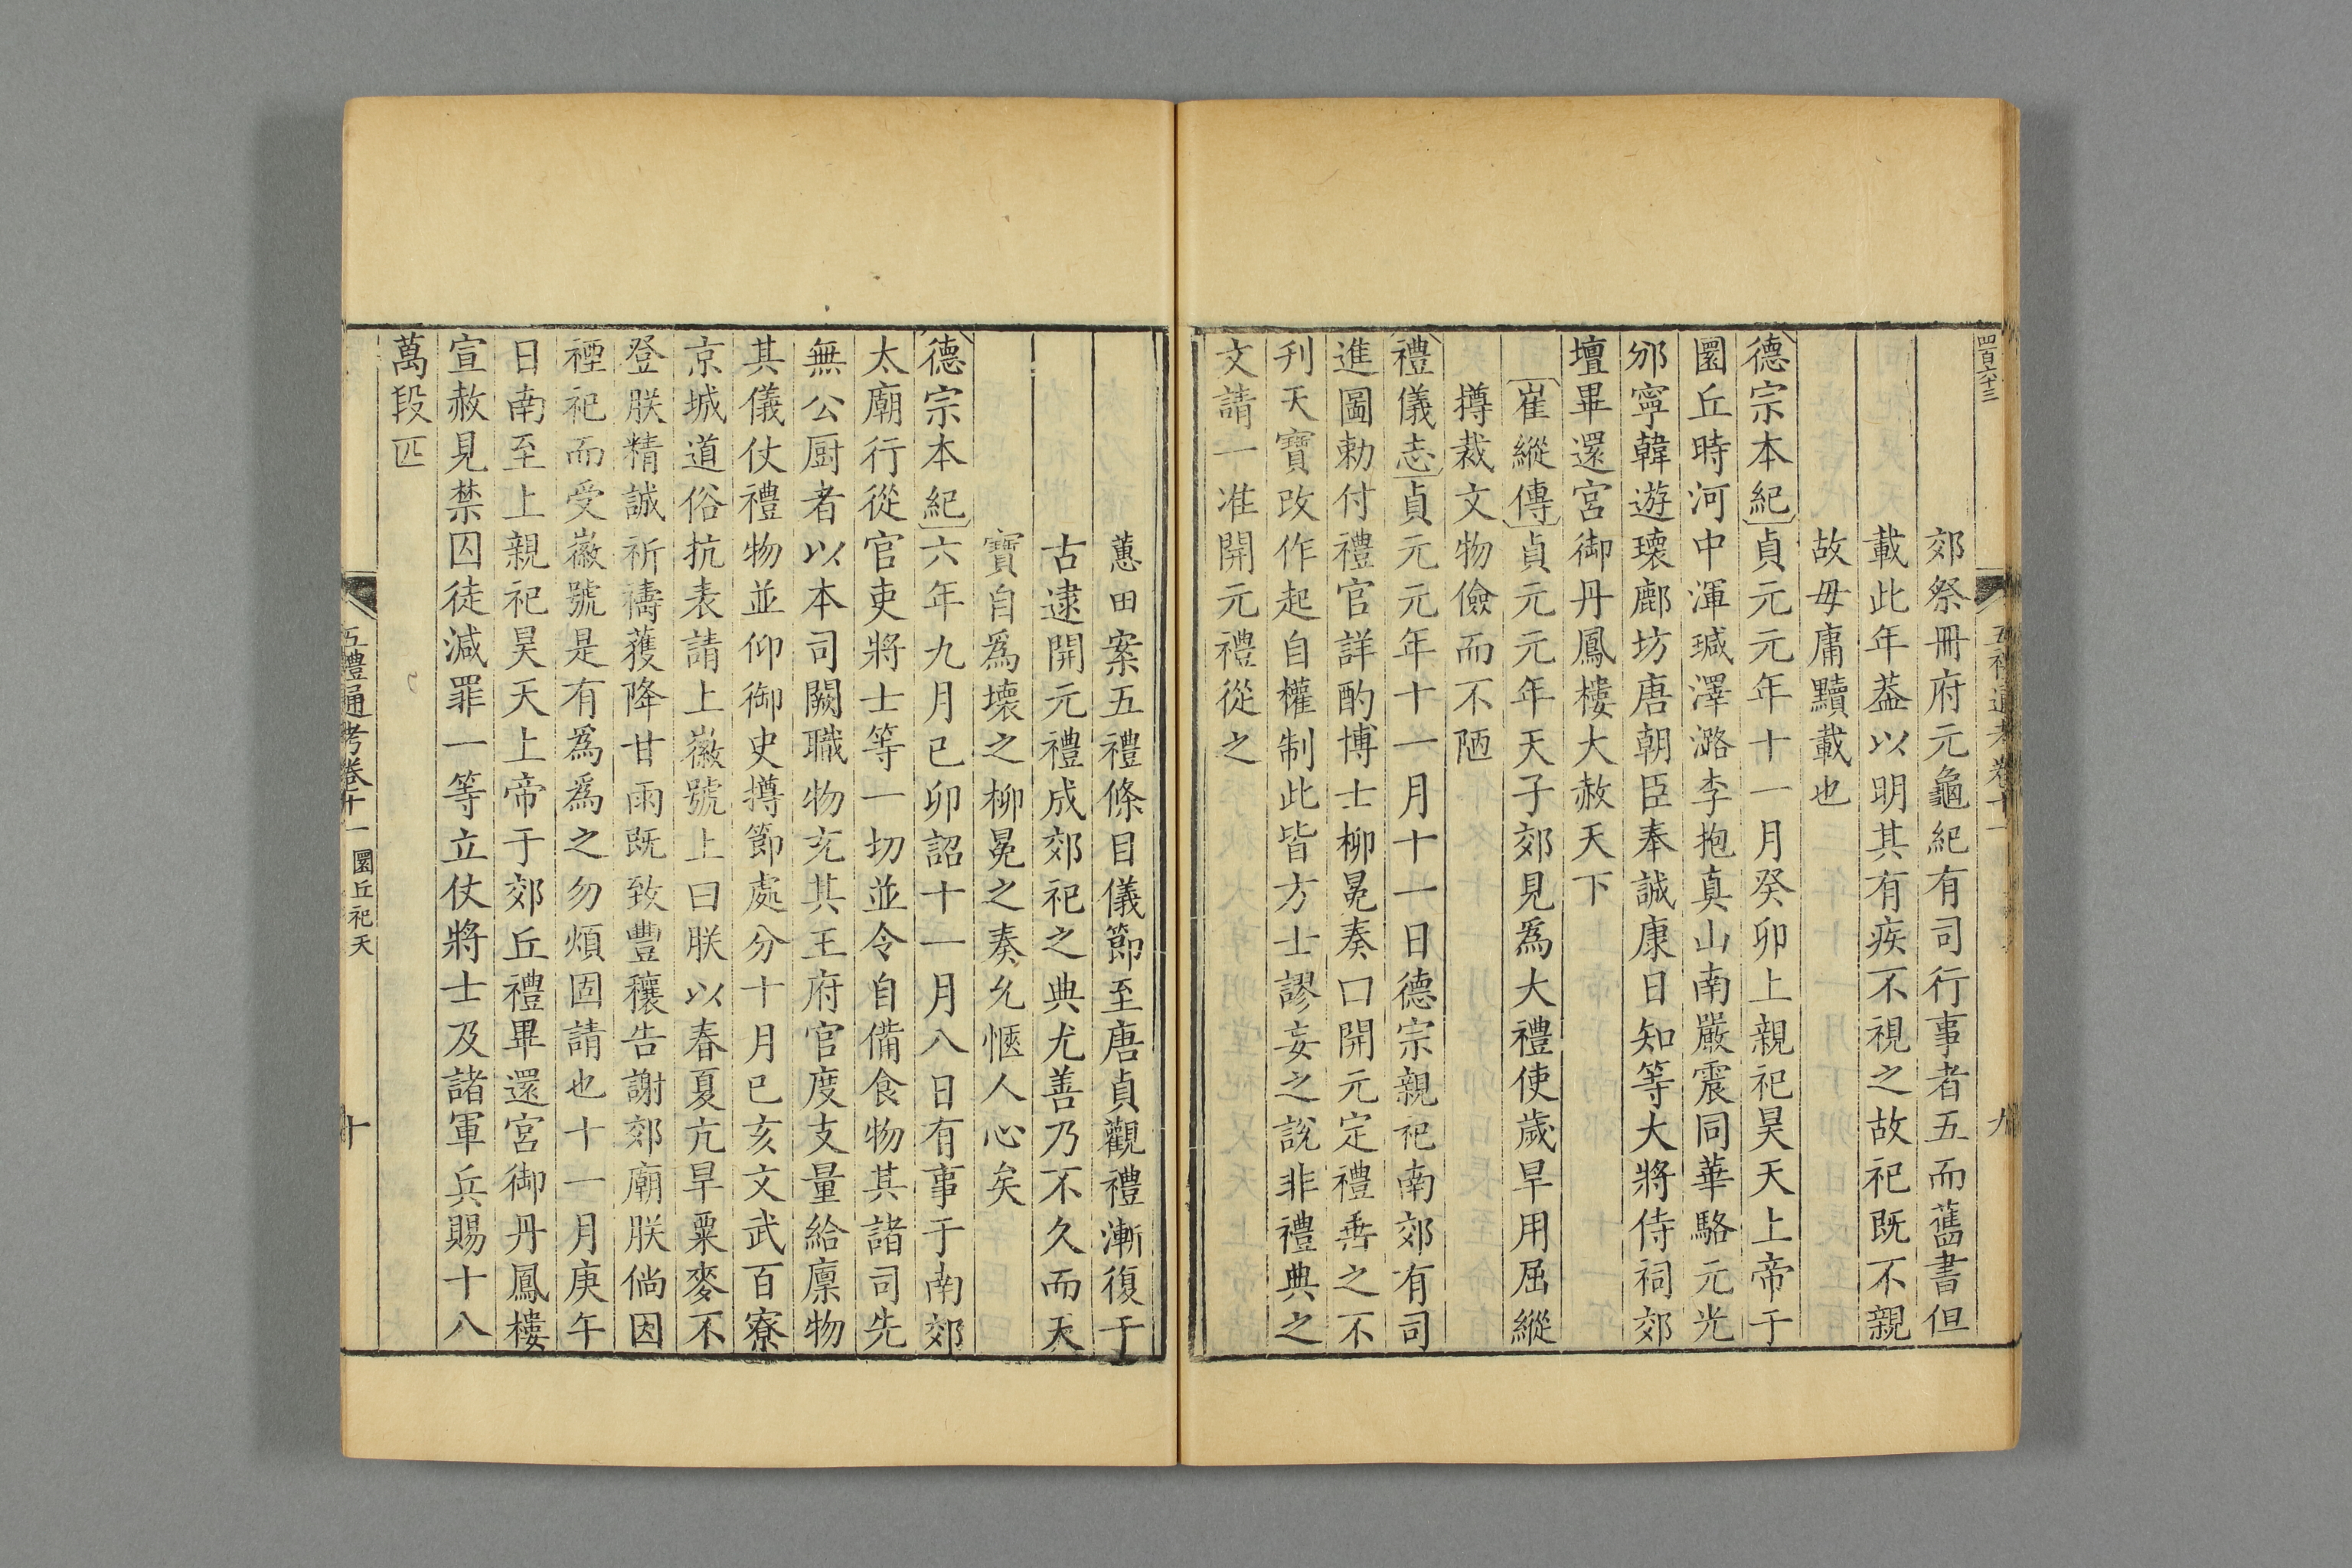 四百六十三
五禮通考卷十一
九
郊祭冊府元龜紀有司行事者五而舊書但
載此年葢以明其有疾不視之故祀既不親
故毋庸黷載也
德宗本紀貞元元年十一月癸卯上親祀昊天上帝于
圜丘時河中渾瑊澤潞李抱真山南嚴震同華駱元光
邠寧韓遊瓌鄜坊唐朝臣奉誠康日知等大將侍祠郊
壇畢還宮御丹鳳樓大赦天下
崔縱傳貞元元年天子郊見爲大禮使歲旱用屈縱
撙裁文物儉而不陋
禮儀志貞元元年十一月十一日德宗親祀南郊有司
進圖勅付禮官詳酌博士柳冕奏曰開元定禮垂之不
刋天寶改作起自權制此皆方士謬妄之說非禮典之
文請一准開元禮從之
蕙田案五禮條目儀節至唐貞觀禮漸復于
古逮開元禮成郊祀之典尤善乃不久而天
寶自爲壞之柳冕之奏允愜人心矣
德宗本紀六年九月己卯詔十一月八日有事于南郊
太廟行從官吏將士等一切並令自備食物其諸司先
無公厨者以本司闕職物充其王府官度支量給廩物
其儀仗禮物並仰御史撙節處分十月己亥文武百寮
京城道俗抗表請上徽號上曰朕以春夏亢旱粟麥不
登朕精誠祈禱獲降甘雨既致豐穰告謝郊廟朕倘因
禋祀而受徽號是有爲爲之勿煩固請也十一月庚午
日南至上親祀昊天上帝于郊丘禮畢還宮御丹鳳樓
宣赦見禁囚徒減罪一等立仗將士及諸軍兵賜十八
萬段匹
五禮通考卷十一 圜丘祀天
十